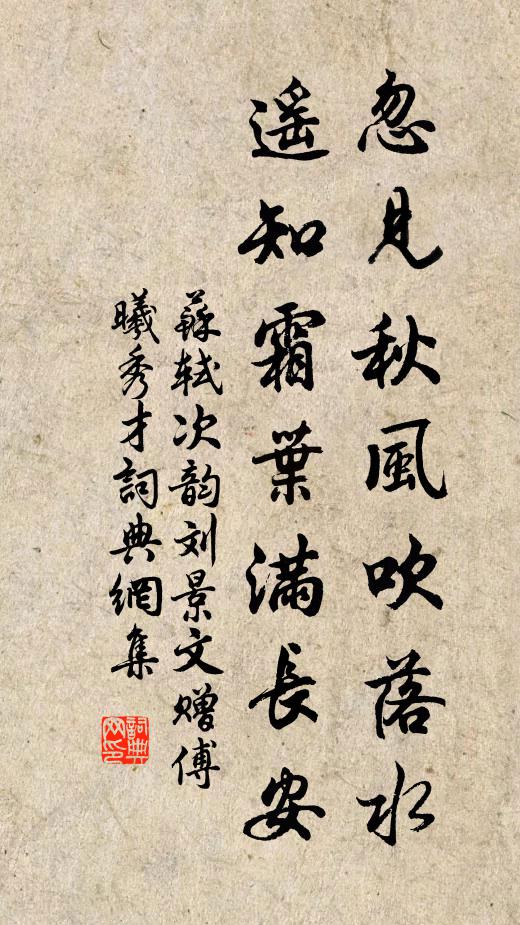 忽見秋風吹落水
遥知霜葉满長安
蘇軾次韵刘景文赠傅
曦秀才詞典網集
詞典网印